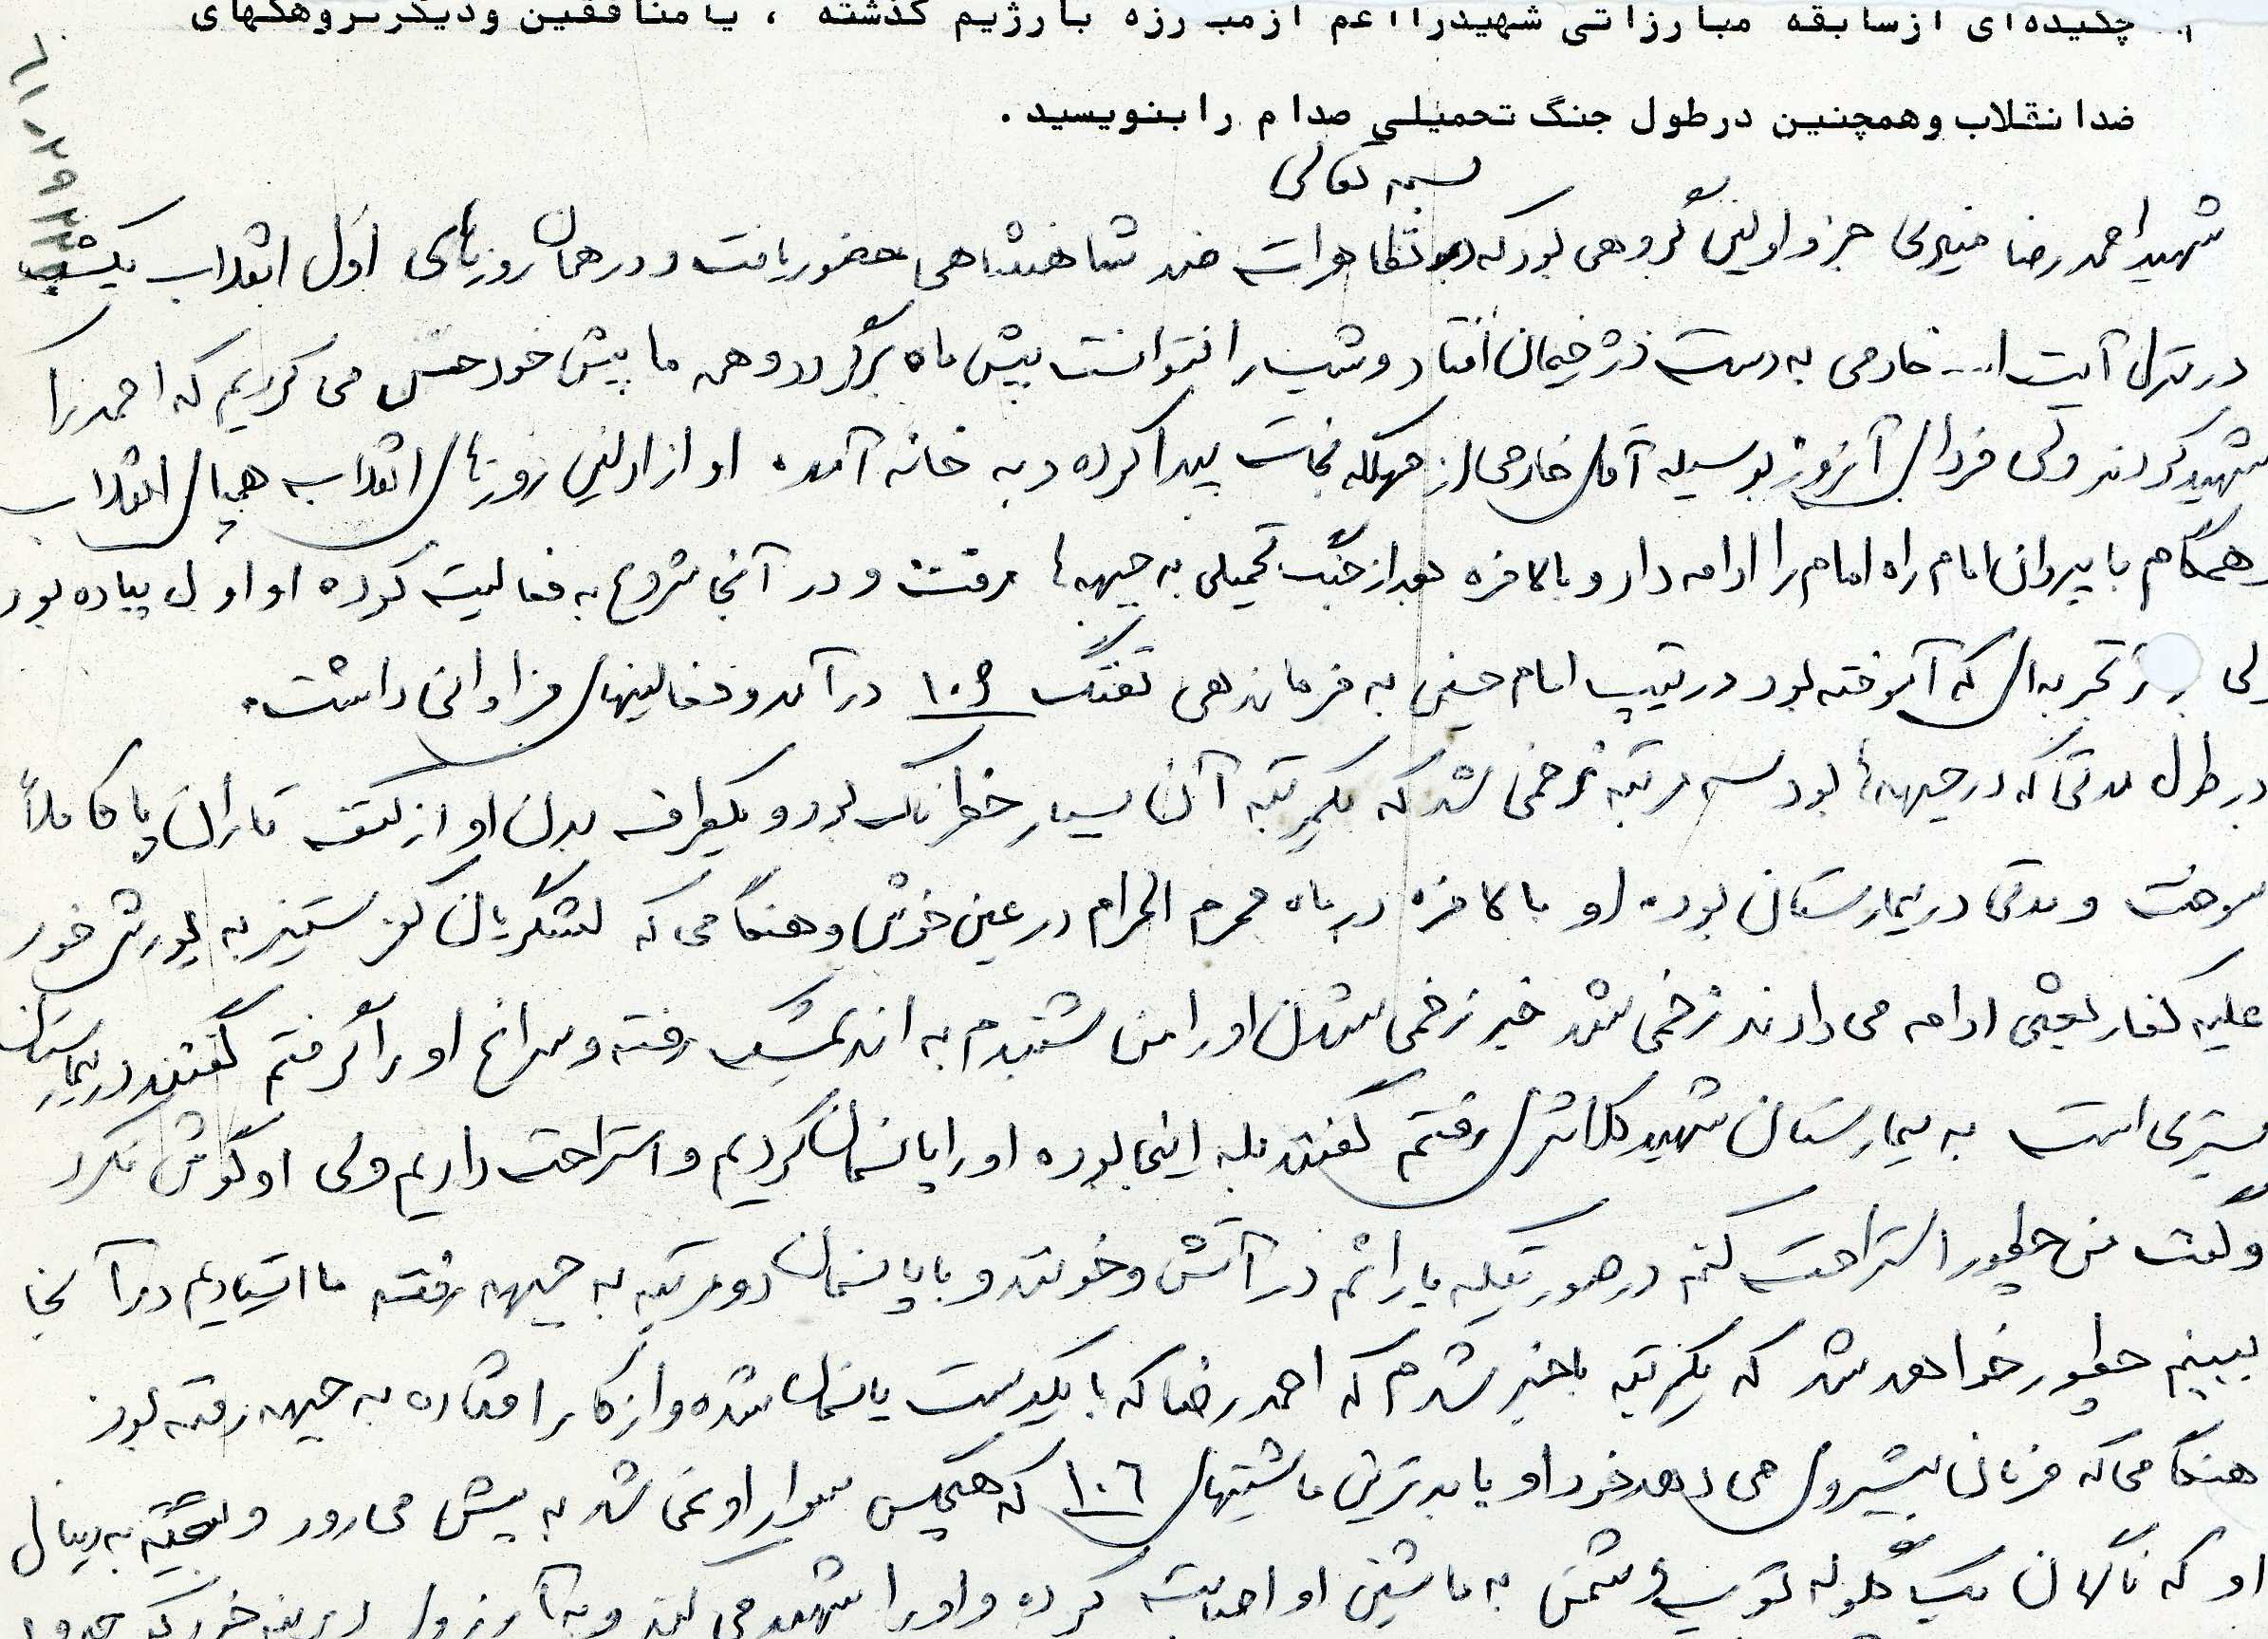 ۱. چکیده‌ای ازسابقه مبارزاتی شهیدرااعم ازمبـ رزه بارژیم گذشته ، یا منافقین ودیگرگروهکهای
ضدانقلاب وهمچنین درطول جنگ تحمیلی صدام رابنویسید .
بسمه تعالی
شهید احمدرضا منیری جزو اولین گروهی بود که در تظاهرات ضد شاهنشاهی حضور یافت و در همان روزهای اول انقلاب یکشب
در منزل آیت ا... خادمی به دست دژخیمان افتاد و شب را نتوانست پیش ماه برگردد و همه ما پیش خود حس می کردیم که احمد را
شهید کردند ولی فردای آنروز بوسیله آقای خادمی از مهلکه نجات پیدا کرده و به خانه آمد. او از اولین روزهای انقلاب به همپای انقلاب
و همگام با پیروان امام راه امام را ادامه داد و بالاخره بعد از جنگ تحمیلی به جبهه ها رفت و در آنجا شروع به فعالیت کرده او اول پیاده بود
ولی تجربه ای که آموخته بود در تیپ امام حسین به فرماندهی تفنگ ۱۰۶ درآمد و فعالیتهای فراوانی داشت.
در طول مدتی که در جبهه ها بود سه مرتبه زخمی شد که یکمرتبه آن بسیار خطرناک بود و یکطرف بدن او از کتف تا ران پا کاملاً
سوخت و مدتی در بیمارستان بود. او بالاخره در ماه محرم الحرام در عین خوشی و هنگامی که لشگریان کفر ستیز به یورش خود
علیه کفار بعثی ادامه می دادند زخمی شد خبر زخمی شدن او را من شنیدم به اندیمشک رفته و سراغ او را گرفتم گفتند در بیمارستان
بستری است به بیمارستان شهید کلانتری رفتم گفتند بله اینجا بوده او را پانسمان کردیم و استراحت دادیم ولی او گوش نکرد
و گفت من چطور استراحت کنم در صورتیکه یارانم در آتش و خونند و با پانسمان دو مرتبه به جبهه رفته ما ایستادیم در آنجا
ببینم چطور خواهد شد که یکمرتبه باخبر شدم که احمدرضا که با یکدست پانسمان شده و از کار افتاده به جبهه رفته بود
هنگامی که فرمان پیشروی می دهد خود او با بدترین ماشینهای ۱۰۶ که هیچکس سوار او نمی شد به پیش می رود و بقیه به دنبال
او که ناگهان یک گلوله توپ دشمن به ماشین او اصابت کرده و او را شهید می کند و به آرزوی دیرینه خود که